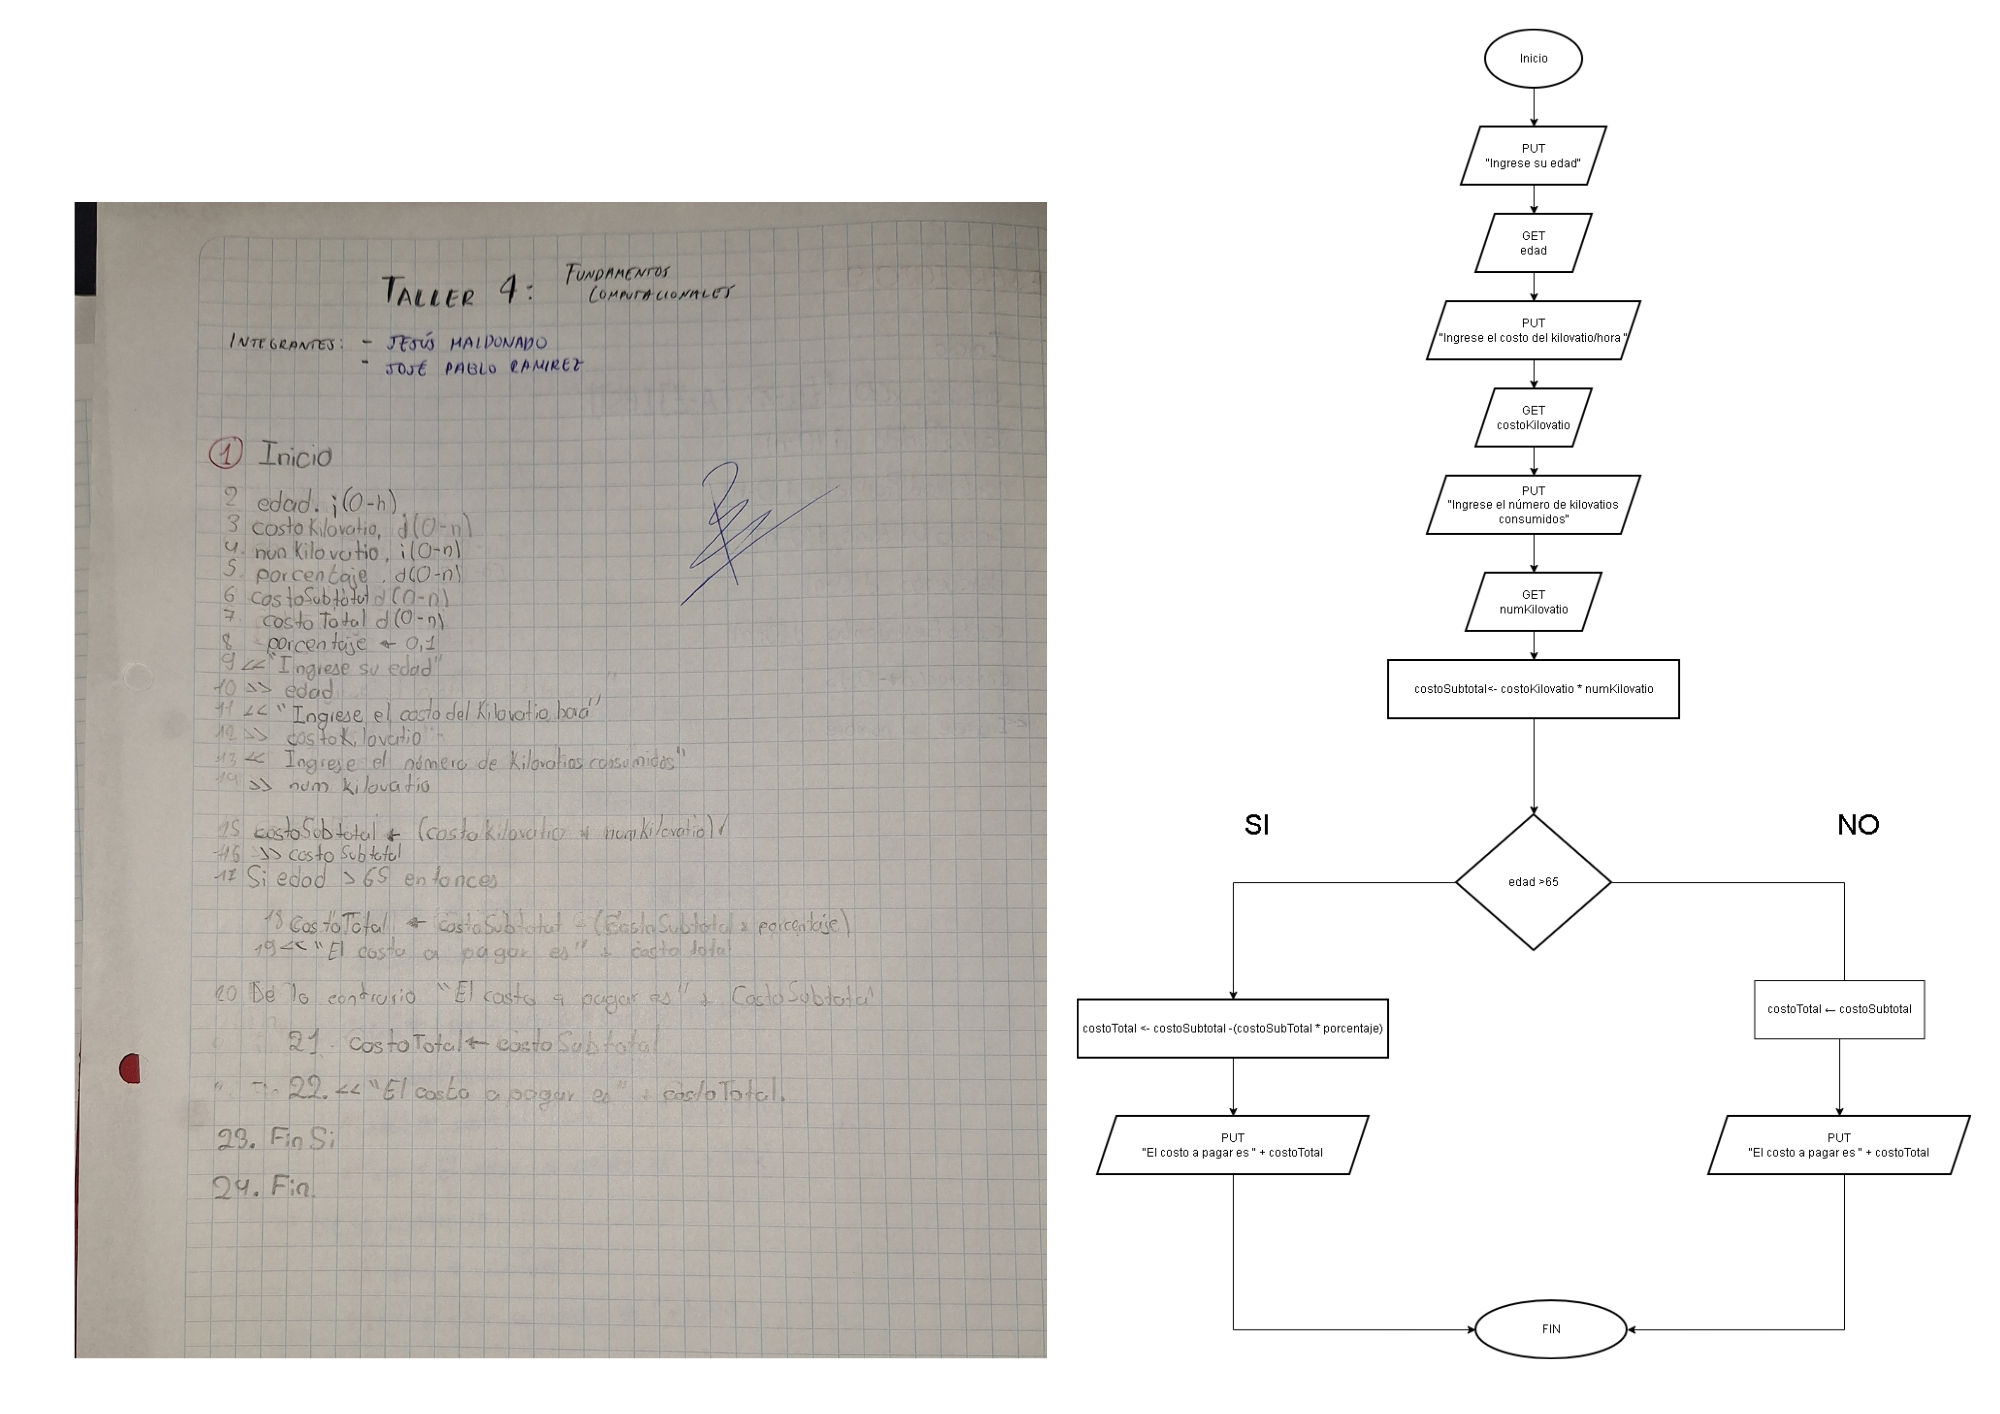 TALLER 4: FUNDAMENTOS
COMPUTACIONALES
INTEGRANTES: - JESÚS MALDONADO
- JOSÉ PABLO RAMIREZ
1 Inicio
2 edad. i(0-n)
3 costoKilovatio, d(0-n)
4. numKilovatio, i(0-n)
5. porcentaje. d(0-n)
6 costoSubtotal d(0-n)
7. costoTotal d(0-n)
8 porcentaje ← 0,1
9 << "Ingrese su edad"
10 >> edad
11 << "Ingrese el costo del Kilovatio hora"
12 >> costoKilovatio
13 << Ingrese el número de Kilovatios consumidos"
14 >> num kilovatio
15 costoSubtotal ← (costoKilovatio * numKilovatio)
16 >> costo Subtotal
17 Si edad > 65 entonces
18 CostoTotal ← costoSubtotal - (CostoSubtotal * porcentaje)
19 << "El costo a pagar es" + costo total
20 De lo contrario "El costo a pagar es" + CostoSubtotal
21. costoTotal ← costoSubtotal
22. << "El costo a pagar es" + costoTotal.
23. Fin Si
24. Fin.
Inicio
PUT
"Ingrese su edad"
GET
edad
PUT
"Ingrese el costo del kilovatio/hora "
GET
costoKilovatio
PUT
"Ingrese el número de kilovatios
consumidos"
GET
numKilovatio
costoSubtotal<- costoKilovatio * numKilovatio
SI
NO
edad >65
costoTotal <- costoSubtotal -(costoSubTotal * porcentaje)
costoTotal ← costoSubtotal
PUT
"El costo a pagar es " + costoTotal
PUT
"El costo a pagar es " + costoTotal
FIN